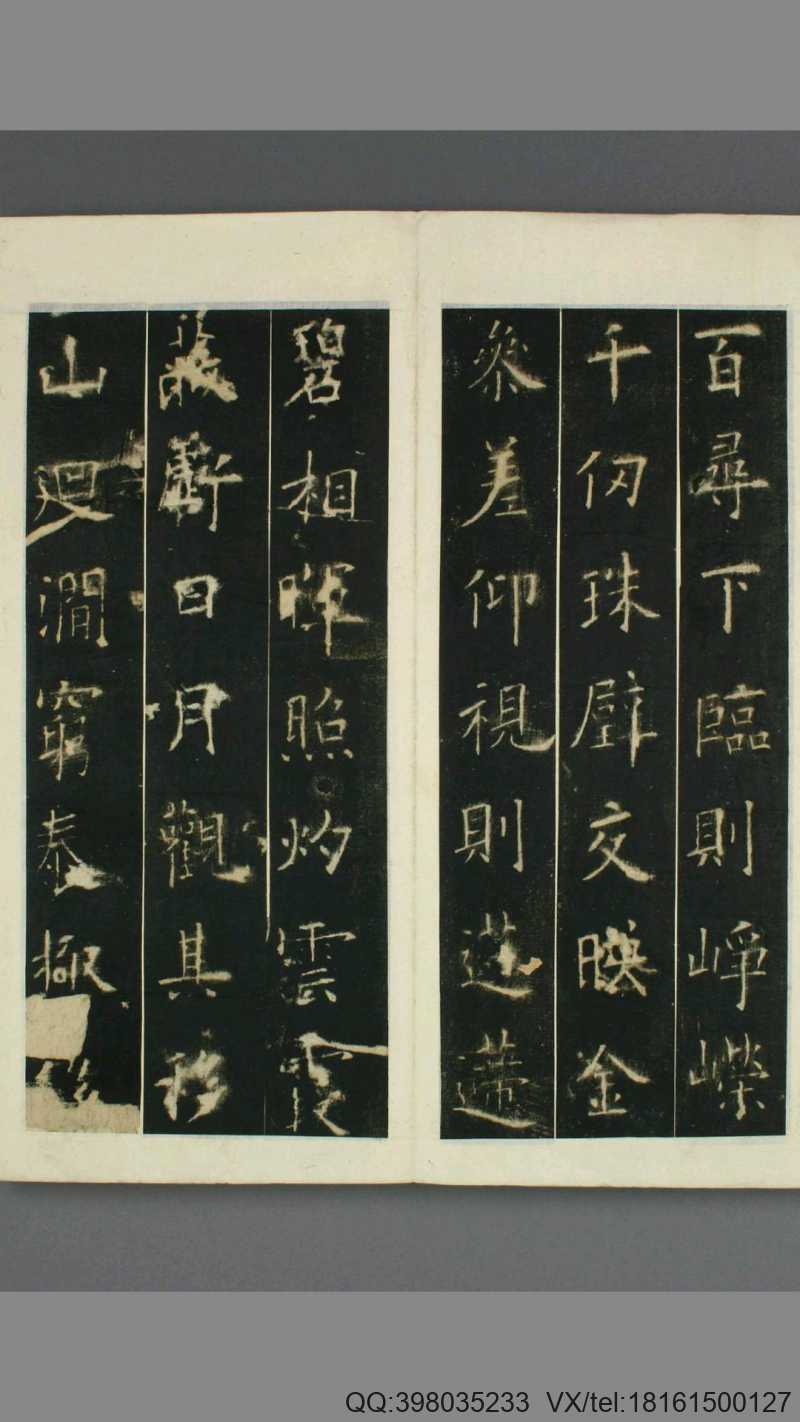 百尋下臨則崢嶸
千仞珠璧交映金
叅差仰視則迢遰
碧相暉照灼雲霞
蔽虧日月觀其移
山廻澗窮泰極
QQ:398035233 VX/tel:18161500127